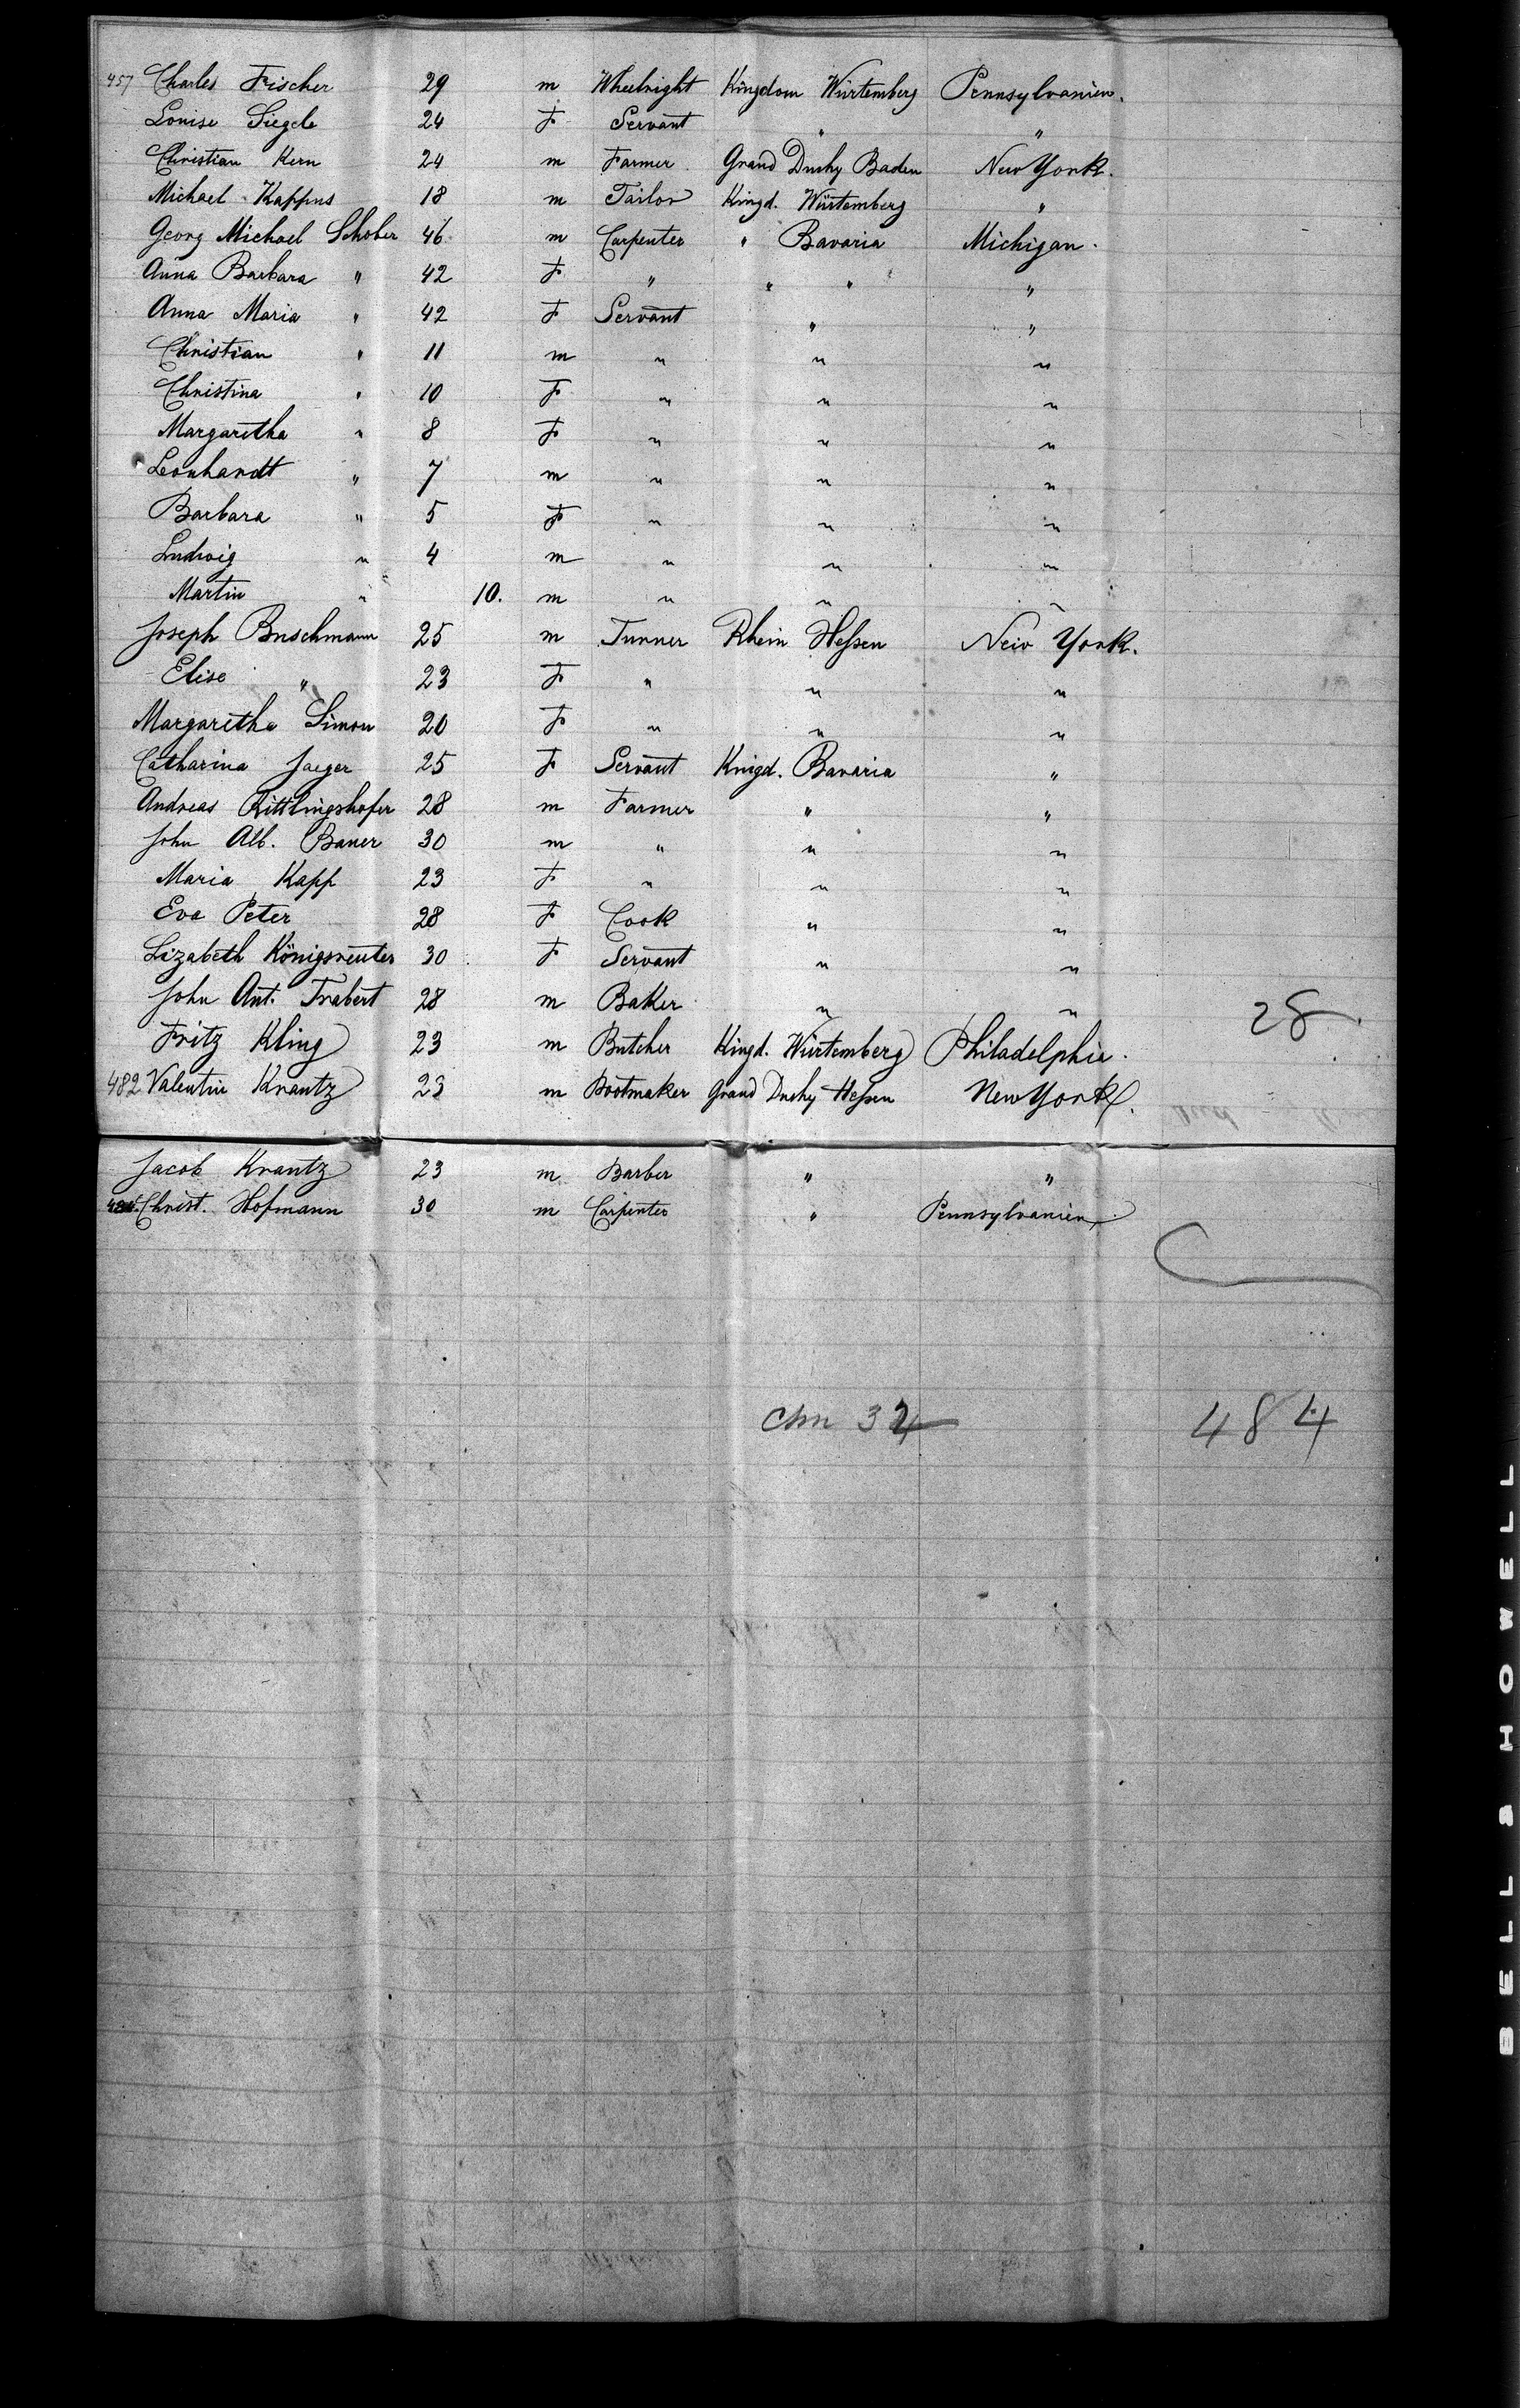 457 Charles Fischer 29 m Wheelright Kingdom Würtemberg Pennsylvanien.
Louise Siegele 24 F Servant " "
Christian Kern 24 m Farmer Grand Duchy Baden New York.
Michael Kappus 18 m Tailor Kingd. Würtemberg "
Georg Michael Schober 46 m Carpenter " Bavaria Michigan.
Anna Barbara " 42 F " " " "
Anna Maria " 42 F Servant " "
Christian " 11 m " " "
Christina " 10 F " " "
Margaretha " 8 F " " "
Leonhardt " 7 m " " "
Barbara " 5 F " " "
Ludwig " 4 m " " "
Martin " 10. m " " "
Joseph Buschmann 25 m Turner Rhein Hessen New York.
Elise " 23 F " " "
Margaretha Simon 20 F " " "
Catharina Jaeger 25 F Servant Kingd. Bavaria "
Andreas Rittlingshofer 28 m Farmer " "
John Alb. Bauer 30 m " " "
Maria Kapp 23 F " " "
Eva Peter 28 F Cook " "
Lizabeth Königsreuter 30 F Servant " "
John Ant. Trabert 28 m Baker " "
28
Fritz Kling 23 m Butcher Kingd. Würtemberg Philadelphia.
482 Valentin Krantz 23 m Bootmaker Grand Duchy Hessen New York.
Jacob Krantz 23 m Barber " "
484. Christ. Hofmann 30 m Carpenter " Pennsylvanien
34 484
BELL & HOWELL